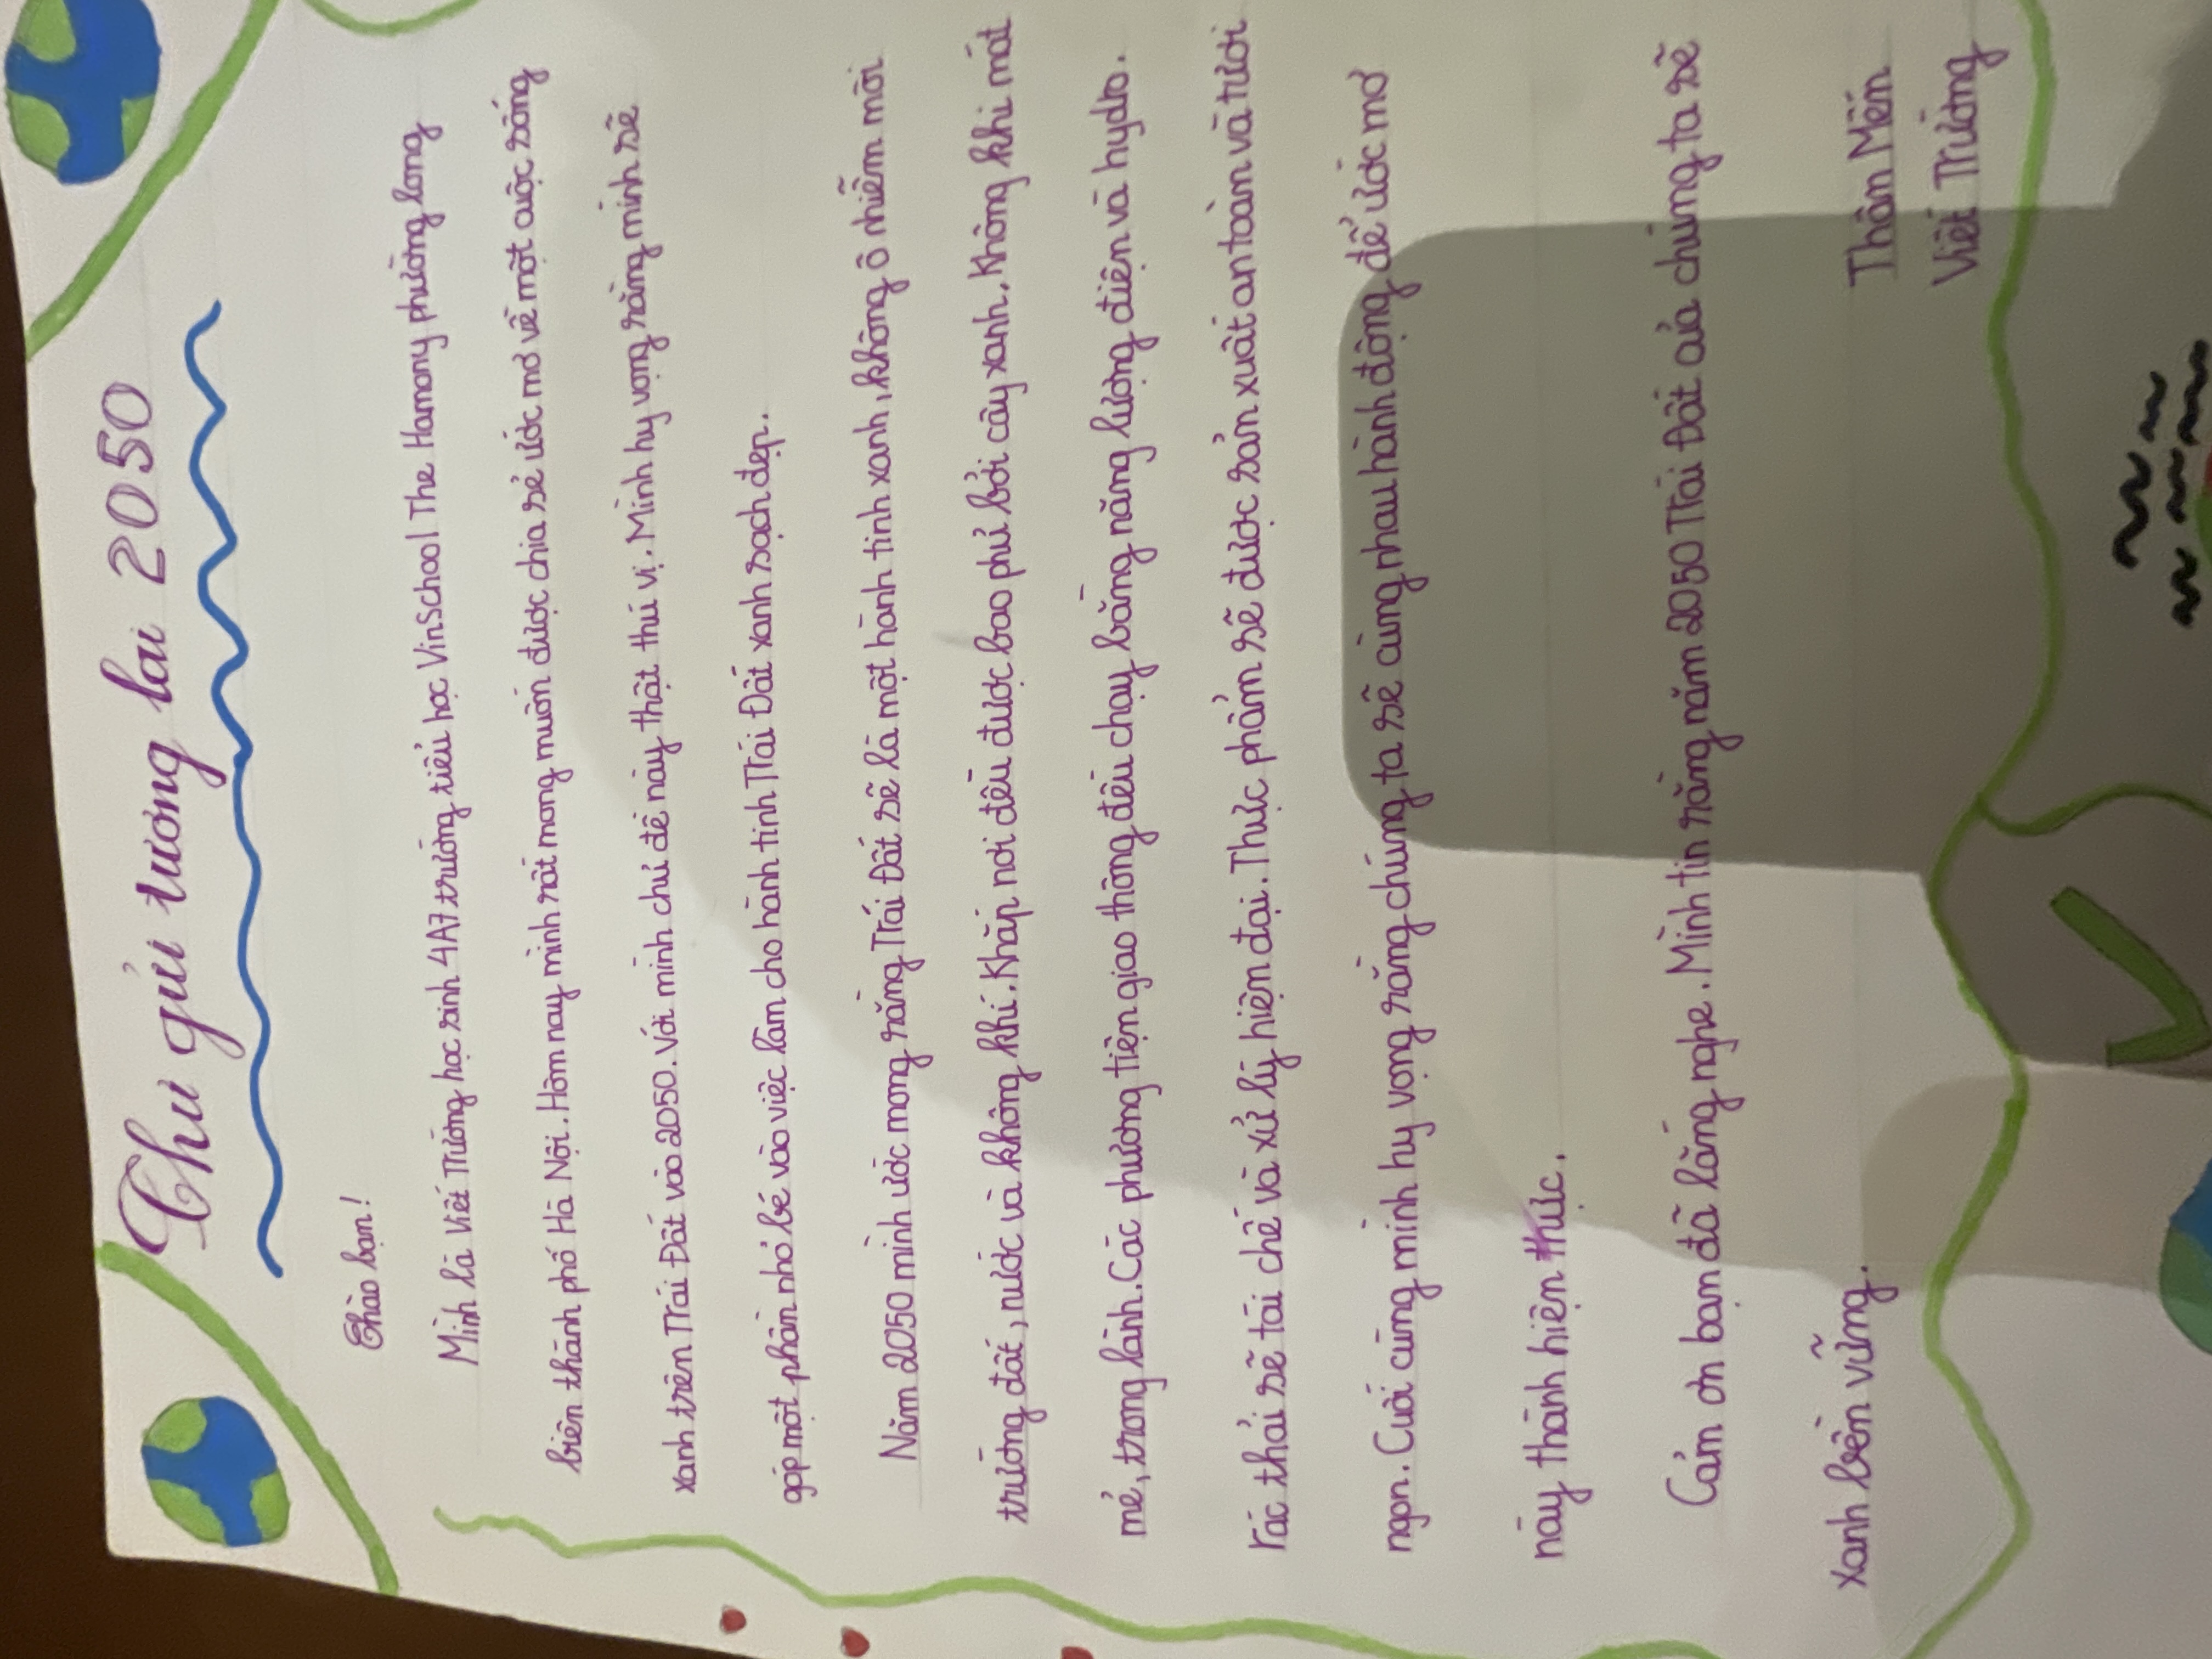 Thư gửi tương lai 2050
Chào bạn!
Mình là Viết Trường học sinh 4A7 trường tiểu học VinSchool The Hamony phường Long
biên thành phố Hà Nội. Hôm nay mình rất mong muốn được chia sẻ ước mơ về một cuộc sống
xanh trên Trái Đất vào 2050. Với mình chủ đề này thật thú vị. Mình hy vọng rằng mình sẽ
góp một phần nhỏ bé vào việc làm cho hành tinh Trái Đất xanh sạch đẹp.
Năm 2050 mình ước mong rằng Trái Đất sẽ là một hành tinh xanh, không ô nhiễm môi
trường đất, nước và không khí. Khắp nơi đều được bao phủ bởi cây xanh. Không khí mát
mẻ, trong lành. Các phương tiện giao thông đều chạy bằng năng lượng điện và hydro.
rác thải sẽ tái chế và xử lý hiện đại. Thực phẩm sẽ được sản xuất an toàn và tươi
ngon. Cuối cùng mình hy vọng rằng chúng ta sẽ cùng nhau hành động để ước mơ
này thành hiện thực.
Cảm ơn bạn đã lắng nghe. Mình tin rằng năm 2050 Trái Đất của chúng ta sẽ
xanh bền vững.
Thân Mến
Viết Trường